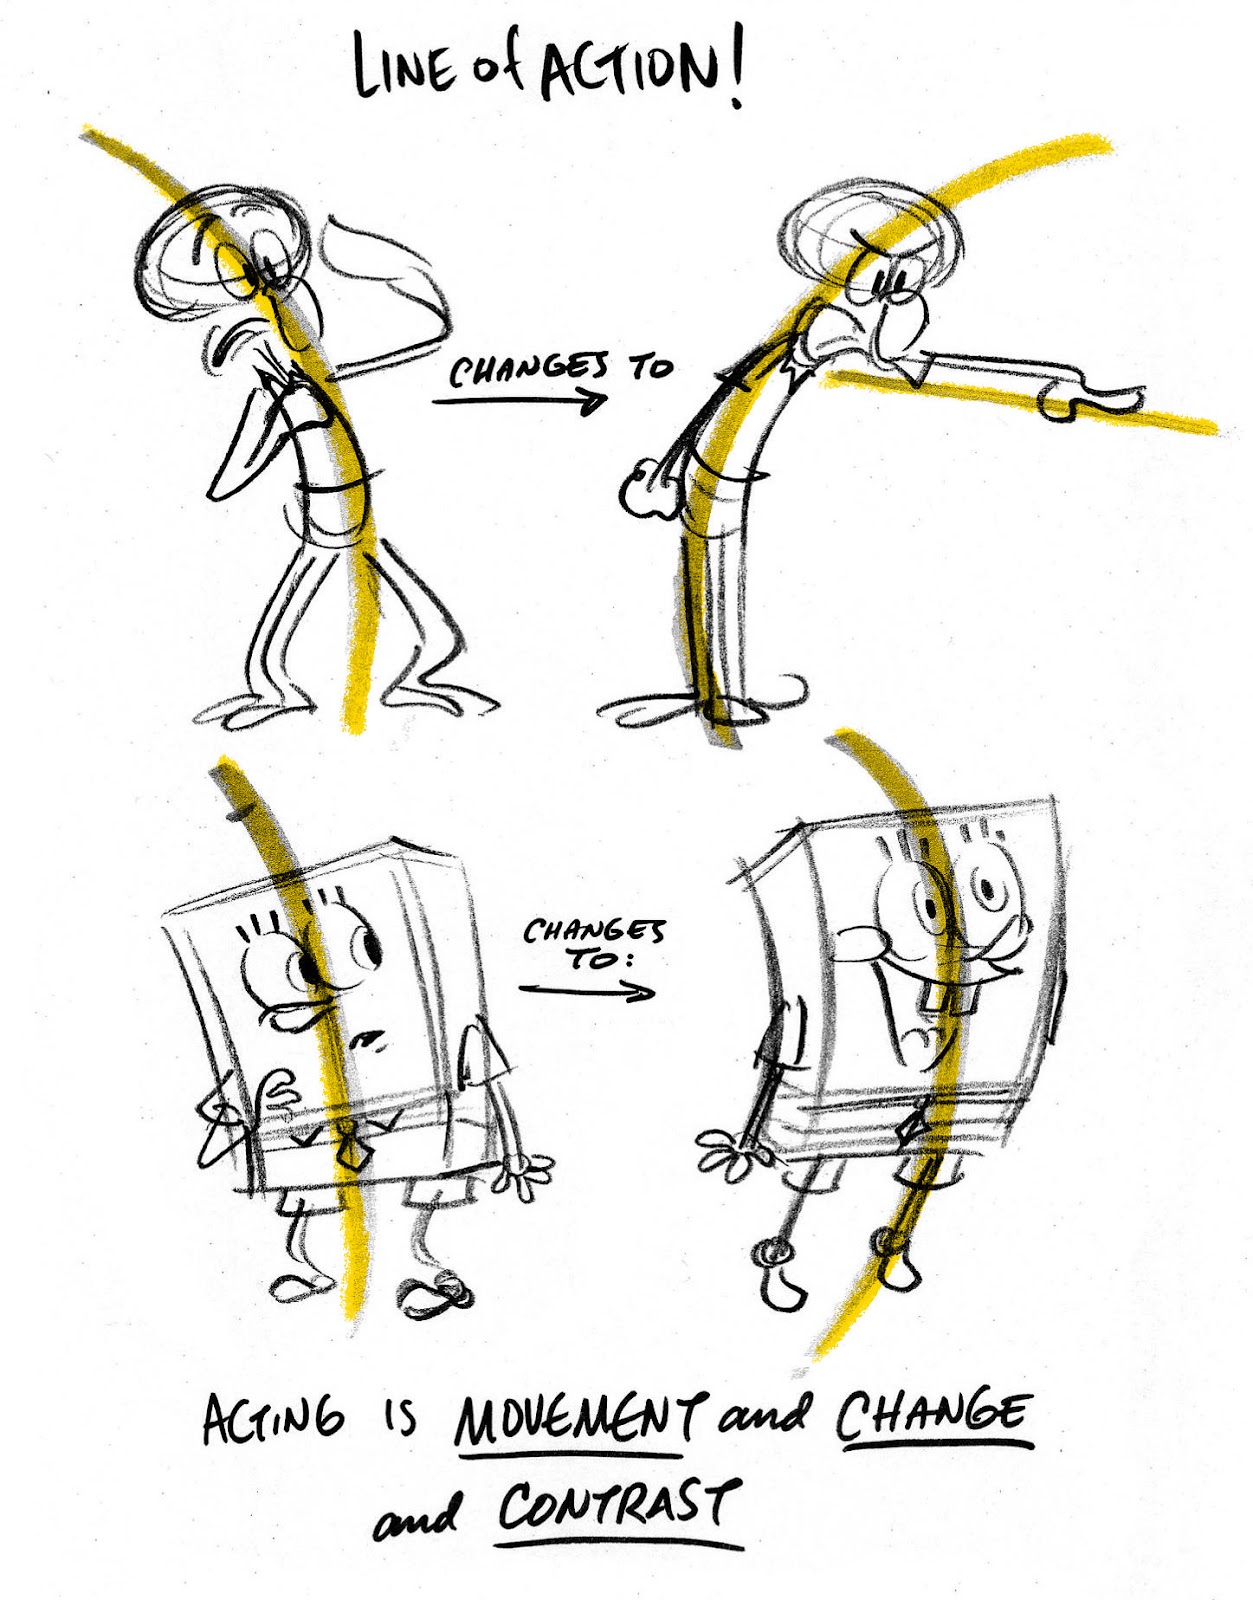 LINE of ACTION!
CHANGES TO
CHANGES
TO:
ACTING IS MOVEMENT and CHANGE
and CONTRAST